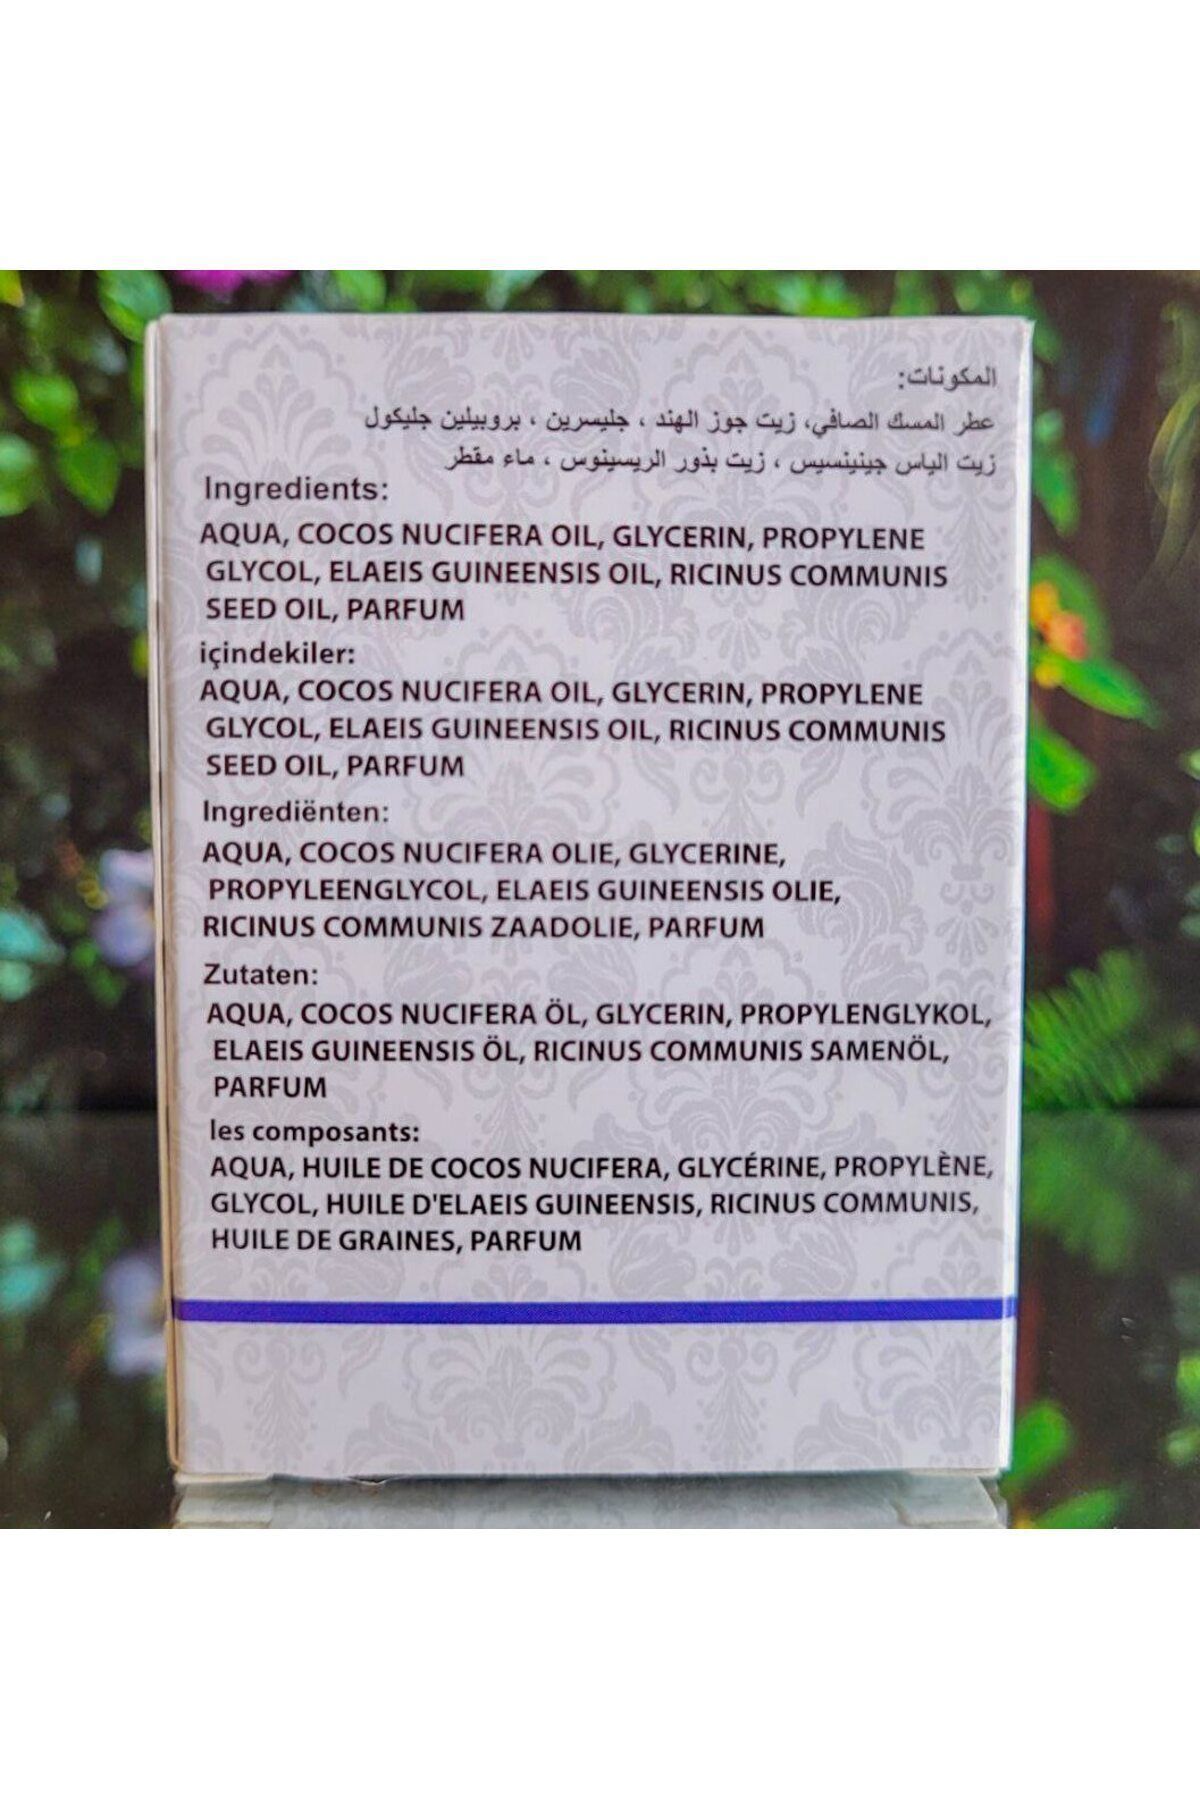 المكونات:
عطر المسك الصافي، زيت جوز الهند ، جليسرين ، بروبيلين جليكول
زيت الياس جينينسيس ، زيت بذور الريسينوس ، ماء مقطر
Ingredients:
AQUA, COCOS NUCIFERA OIL, GLYCERIN, PROPYLENE
GLYCOL, ELAEIS GUINEENSIS OIL, RICINUS COMMUNIS
SEED OIL, PARFUM
içindekiler:
AQUA, COCOS NUCIFERA OIL, GLYCERIN, PROPYLENE
GLYCOL, ELAEIS GUINEENSIS OIL, RICINUS COMMUNIS
SEED OIL, PARFUM
Ingrediënten:
AQUA, COCOS NUCIFERA OLIE, GLYCERINE,
PROPYLEENGLYCOL, ELAEIS GUINEENSIS OLIE,
RICINUS COMMUNIS ZAADOLIE, PARFUM
Zutaten:
AQUA, COCOS NUCIFERA ÖL, GLYCERIN, PROPYLENGLYKOL,
ELAEIS GUINEENSIS ÖL, RICINUS COMMUNIS SAMENÖL,
PARFUM
les composants:
AQUA, HUILE DE COCOS NUCIFERA, GLYCÉRINE, PROPYLÈNE,
GLYCOL, HUILE D'ELAEIS GUINEENSIS, RICINUS COMMUNIS,
HUILE DE GRAINES, PARFUM